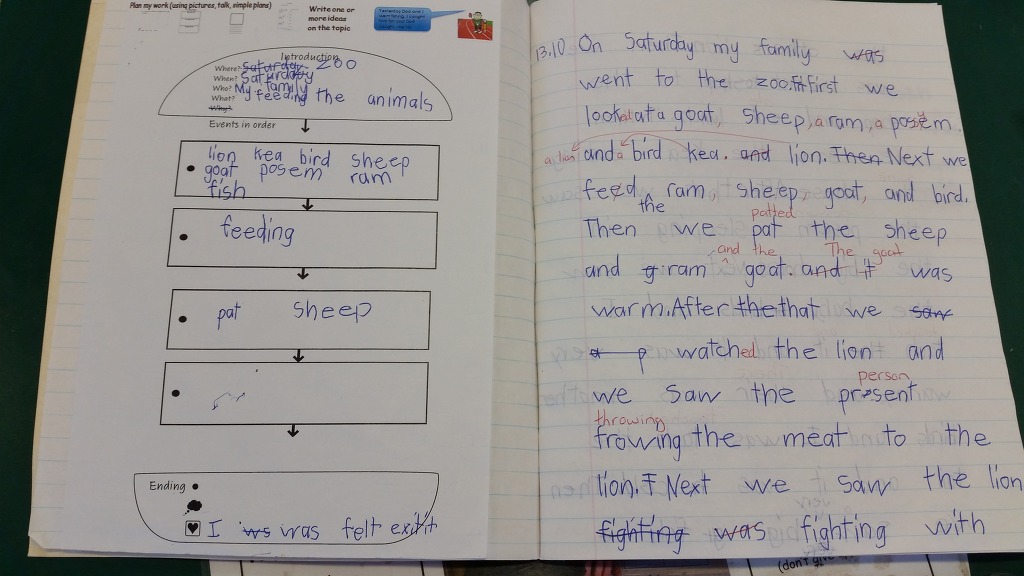 Plan my work (using pictures, talk, simple plans)
Write one or
more ideas
on the topic
Introduction
Where? Saturday Zoo
When? Saturdday
Who? My family
What? feeding the animals
Why?
Events in order
lion kea bird sheep
goat posem ram
fish
feeding
pat sheep
Ending
I ws was felt exitit
13.10 On Saturday my family was
went to the zoo. first we
looked at a goat, sheep, a ram, a posem.
a lion and a bird kea. and lion. Then Next we
feed ram sheep, goat, and bird.
the patted
Then we pat the sheep
and the The goat
and g ram goat. and it was
warm. After the that we saw
a p watched the lion and
person
we saw the present
throwing
frowing the meat to the
lion. T Next we saw the lion
fighting was fighting with
(don't give